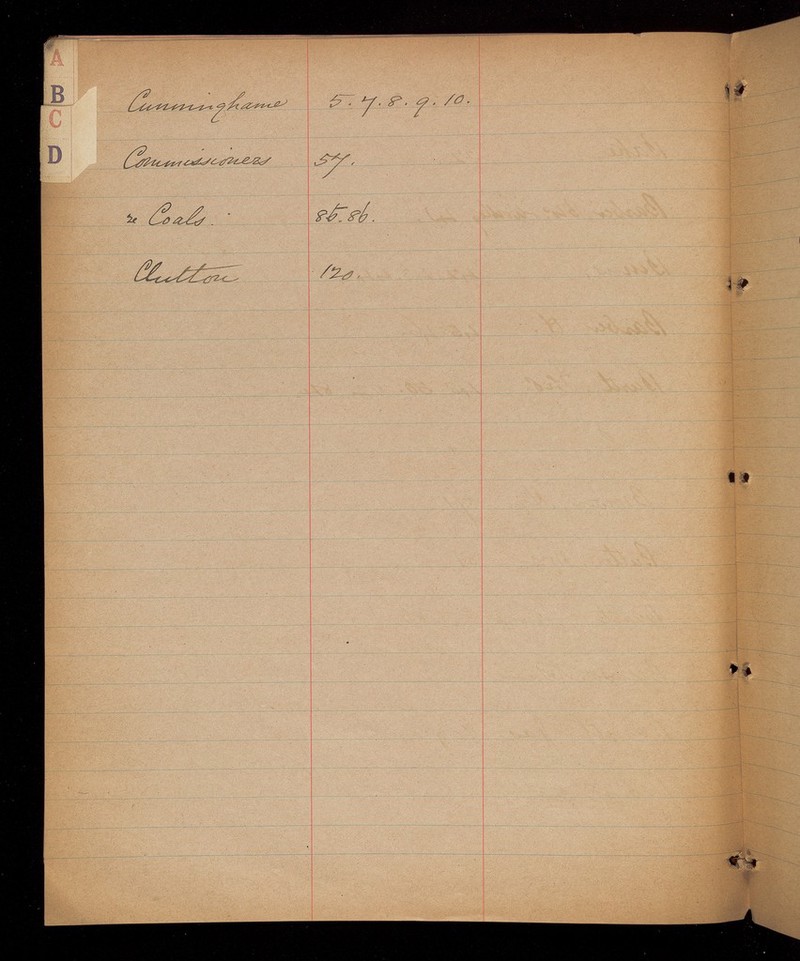 A
B
C
D
Cunninghame 5. 7. 8. 9. 10.
Commissioners 57.
re Coals. 85. 86.
Clutton 120.